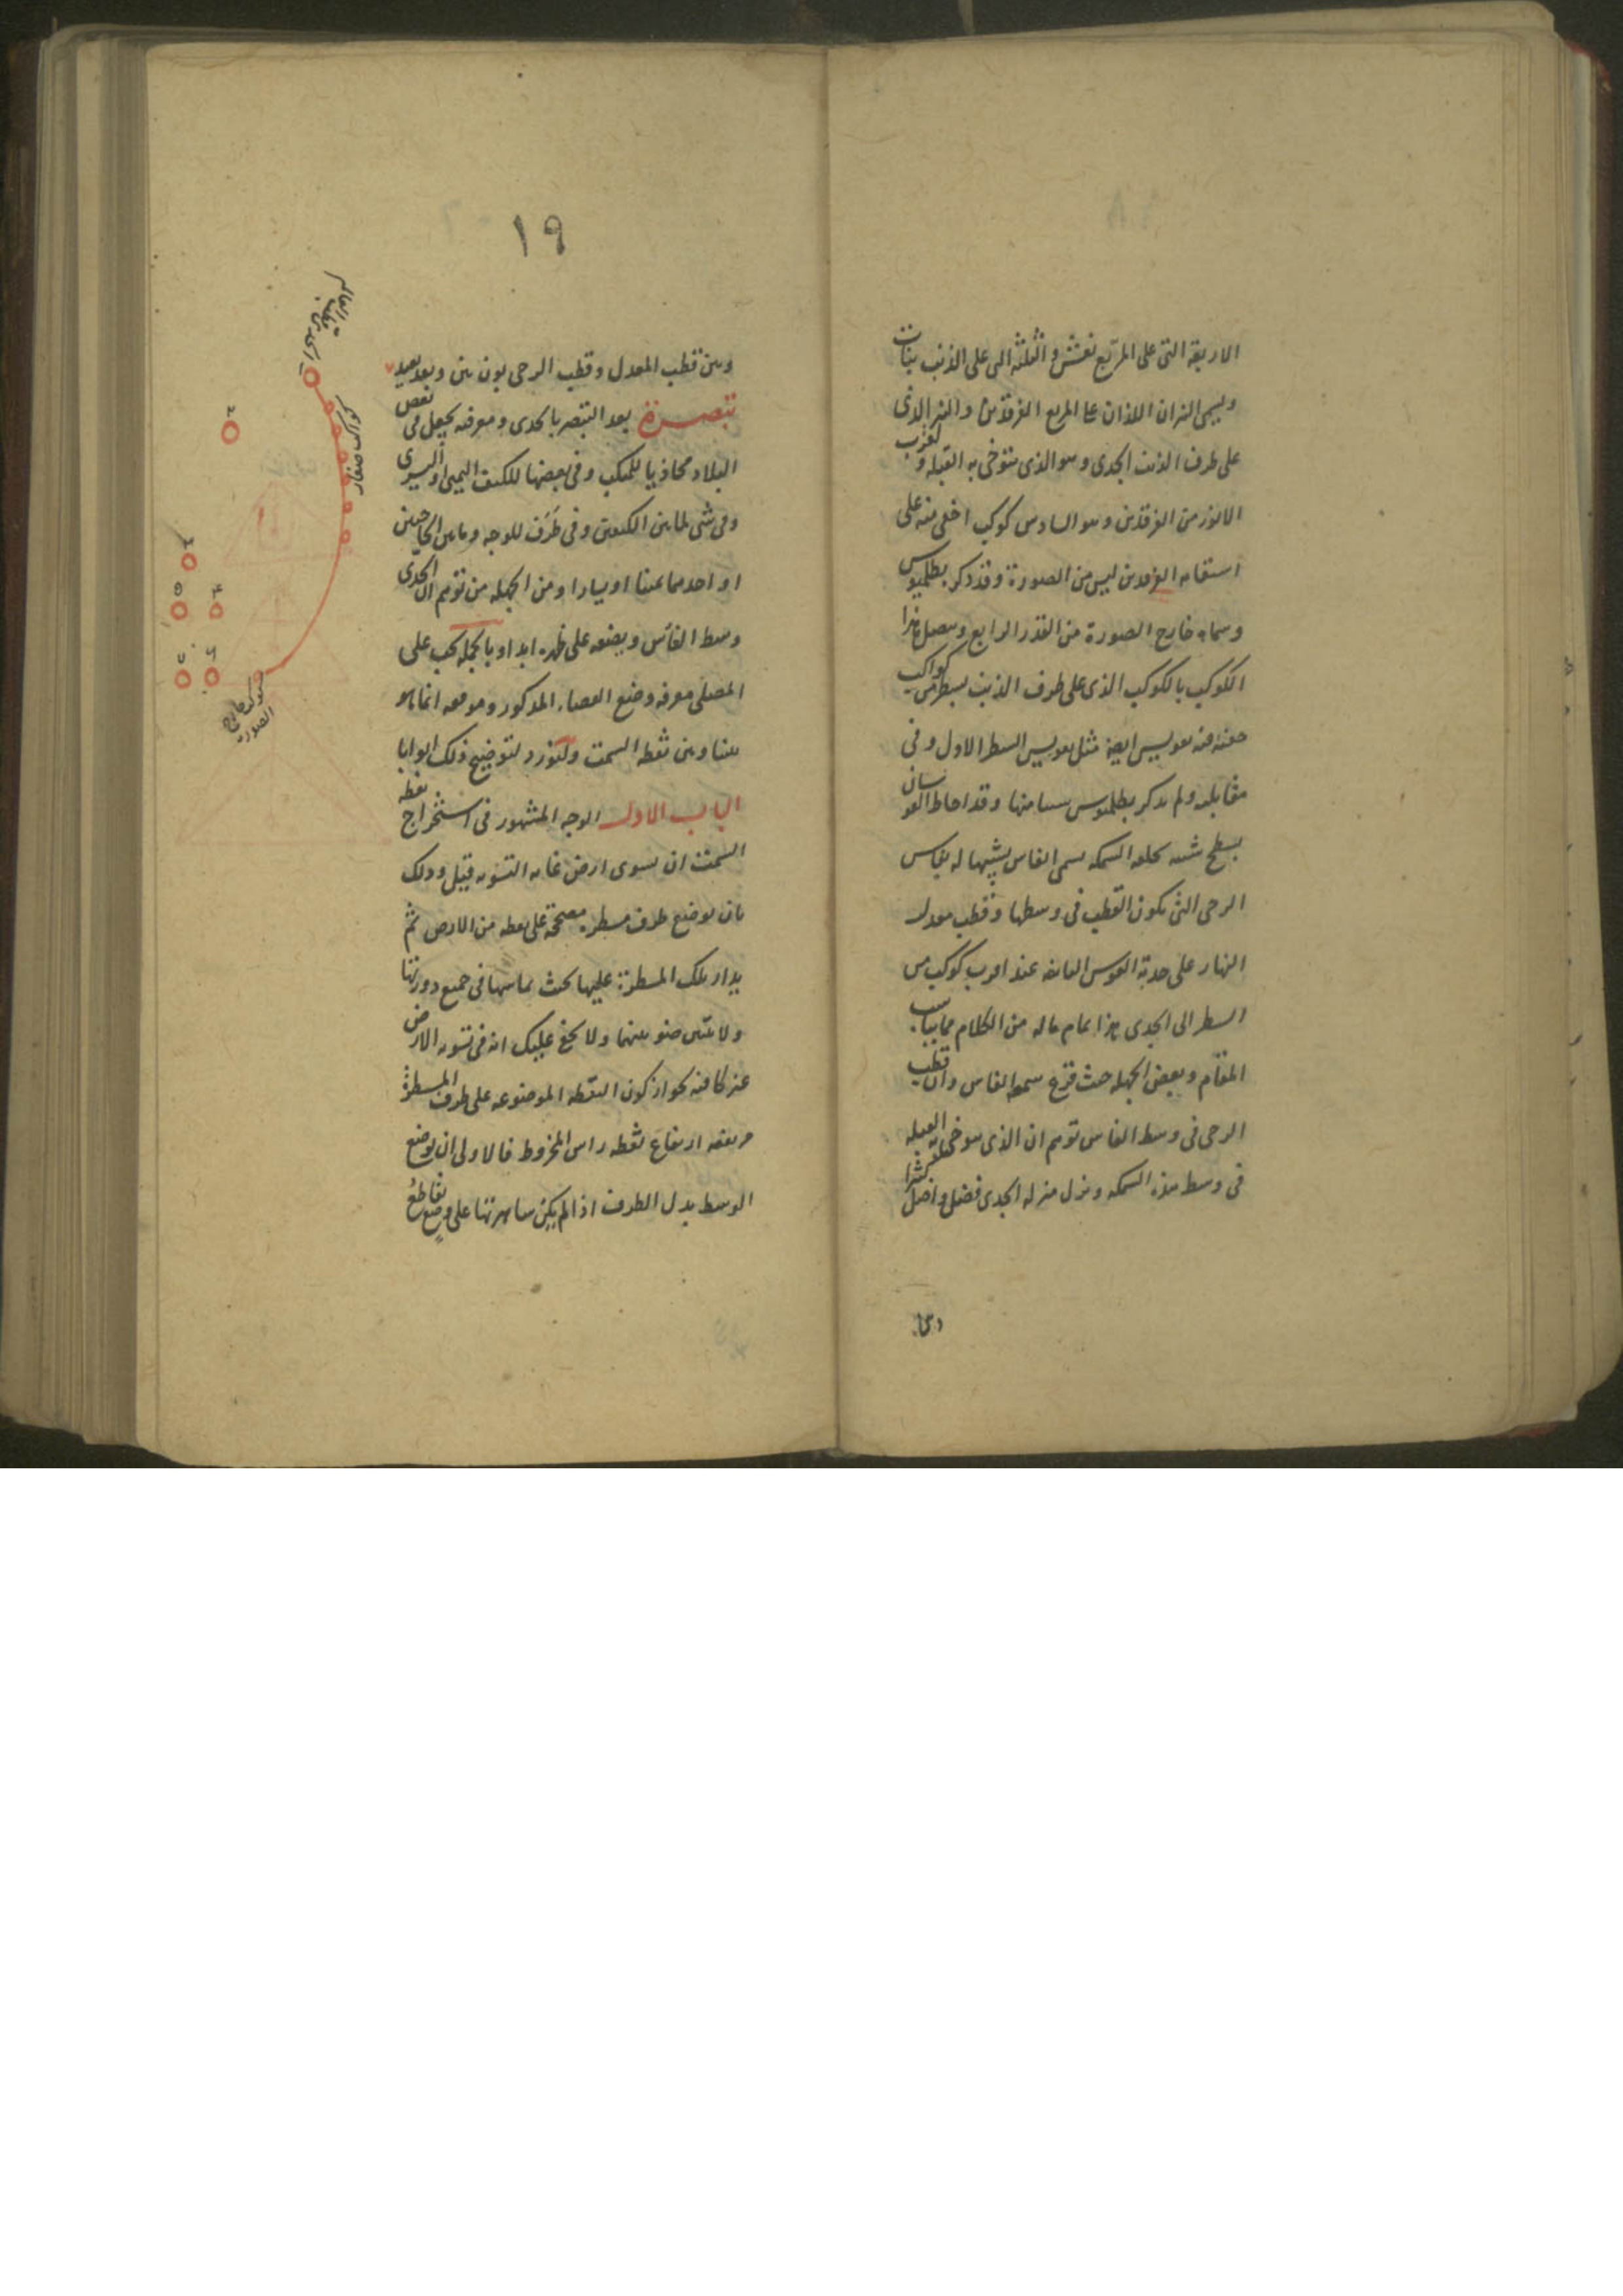 الاربعة التى على المربع نعش والثلثة التى على الذنب بنات
ويسمى النيران اللذان على المربع الفرقدين والنير الذى
على طرف الذنب الجدى وهو الذى يتوخى به القبلة و لقرب
الانور من الفرقدين وهو السادس كوكب اخفى منه على
استقامة الفرقدين ليس من الصورة وقد ذكره بطلميوس
وسماه خارج الصورة من القدر الرابع ويتصل هذا
الكوكب بالكوكب الذى على طرف الذنب بسطر من كواكب
خفية فيه تقويس ايضا مثل تقويس السطر الاول وفى
مقابلته ولم يذكر بطلميوس شيئا منها وقد احاط القوسان
بسطح شبيه بخلقة السمكة يسمى الفاس تشبيها له بفاس
الرحى التى يكون القطب فى وسطها وقطب معدل
النهار على حدبة القوس الثانية عند اقرب كوكب من
السطر الى الجدى هذا تمام ما له من الكلام مما يناسب
المقام وبعض الجهلة حيث قرع سمعه الفاس وان قطب
الرحى فى وسط الفاس توهم ان الذى يتوخى به القبلة
فى وسط هذه السمكة ونزل منزلة الجدى فضل واضل كثيرا
١٩
وبين قطب المعدل وقطب الرحى بون بين وبعد بعيد
تبصرة بعد التبصر بالجدى ومعرفته يجعل فى بعض
البلاد محاذيا للمنكب وفى بعضها للكتف اليمنى او اليسرى
وفى شى لما بين الكتفين وفى طرف للوجه وما بين الحاجبين
او احدهما يمينا او يسارا ومن الجهلة من توهم ان الجدى
وسط الفاس ويضعه على ظهره ابدا وبالجملة يجب على
المصلى معرفة وضع العضاء المذكور وموقعه انما هو
بيننا وبين نقطة السمت ولنورد لتوضيح ذلك ابوابا
الباب الاول الوجه المشهور فى استخراج نقطة
السمت ان يسوى ارض غاية التسوية قيل وذلك
بان يوضع طرف مسطرة مصححة على نقطة من الارض ثم
يدار تلك المسطرة عليها بحيث يماسها فى جميع دورتها
ولا يتبين ضوء بينهما ولا يخفى عليك انه فى تسوية الارض
غير كافية لجواز كون النقطة الموضوعة على طرف المسطرة
مرتفعة ارتفاع نقطة راس المخروط فالاولى ان يوضع
الوسط بدل الطرف اذا لم يكن على وضع تقاطع
كواكب صغار
كوكب خارج الصورة